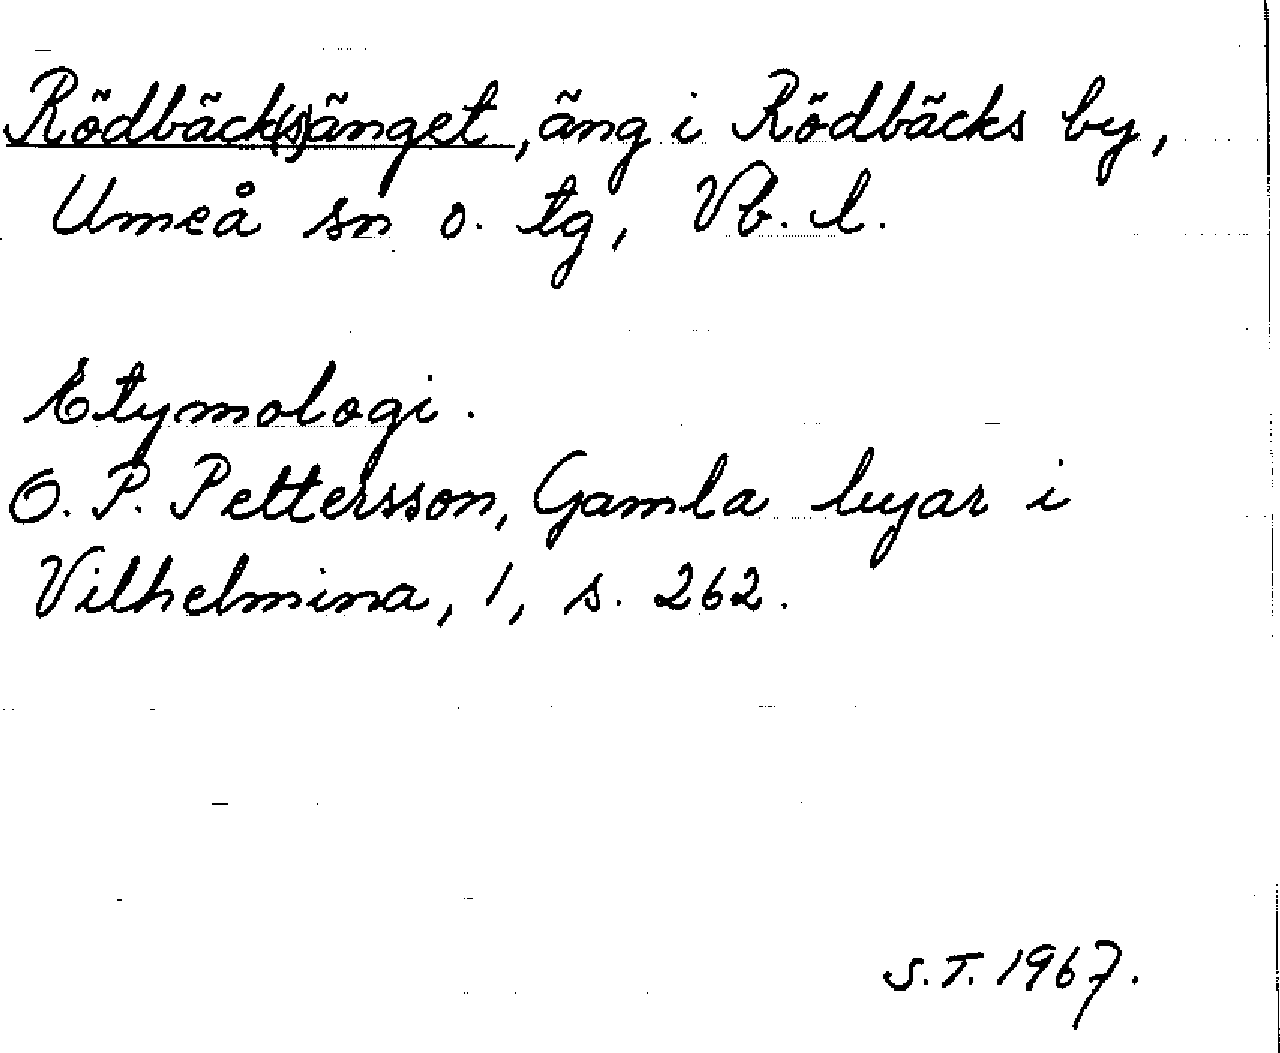 Rödbäck(s)änget, äng i Rödbäcks by,
Umeå sn o. tg, Vb. l.
Etymologi.
O. P. Pettersson, Gamla byar i
Vilhelmina, 1, s. 262.
S.T. 1967.